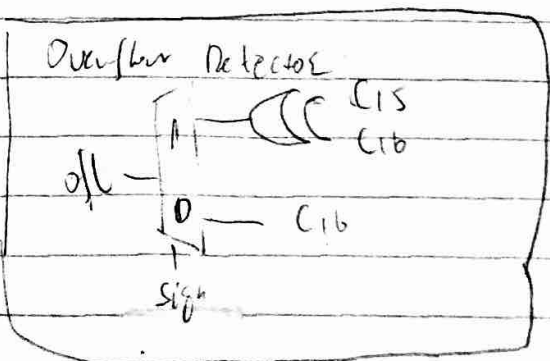 Overflow Detector
C15
1
C16
o/l
0
C16
Sign